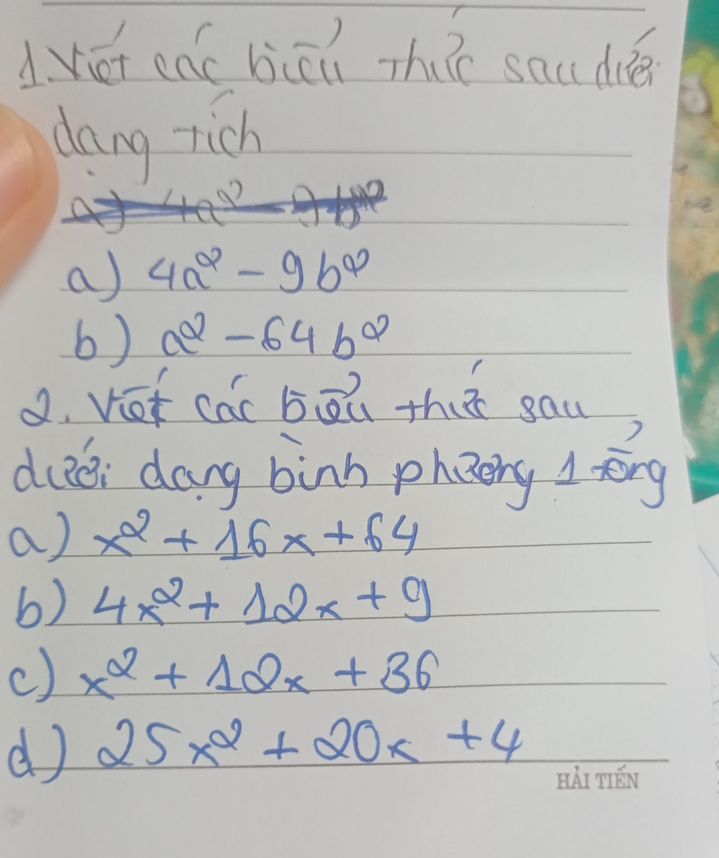 1. Viết các biểu thức sau dưới
dạng tích
a) 4a² - 9b²
a) 4a² - 9b²
b) a² - 64b²
2. Viết các biểu thức sau
dưới dạng bình phương 1 tổng
a) x² + 16x + 64
b) 4x² + 12x + 9
c) x² + 12x + 36
d) 25x² + 20x + 4
HẢI TIẾN